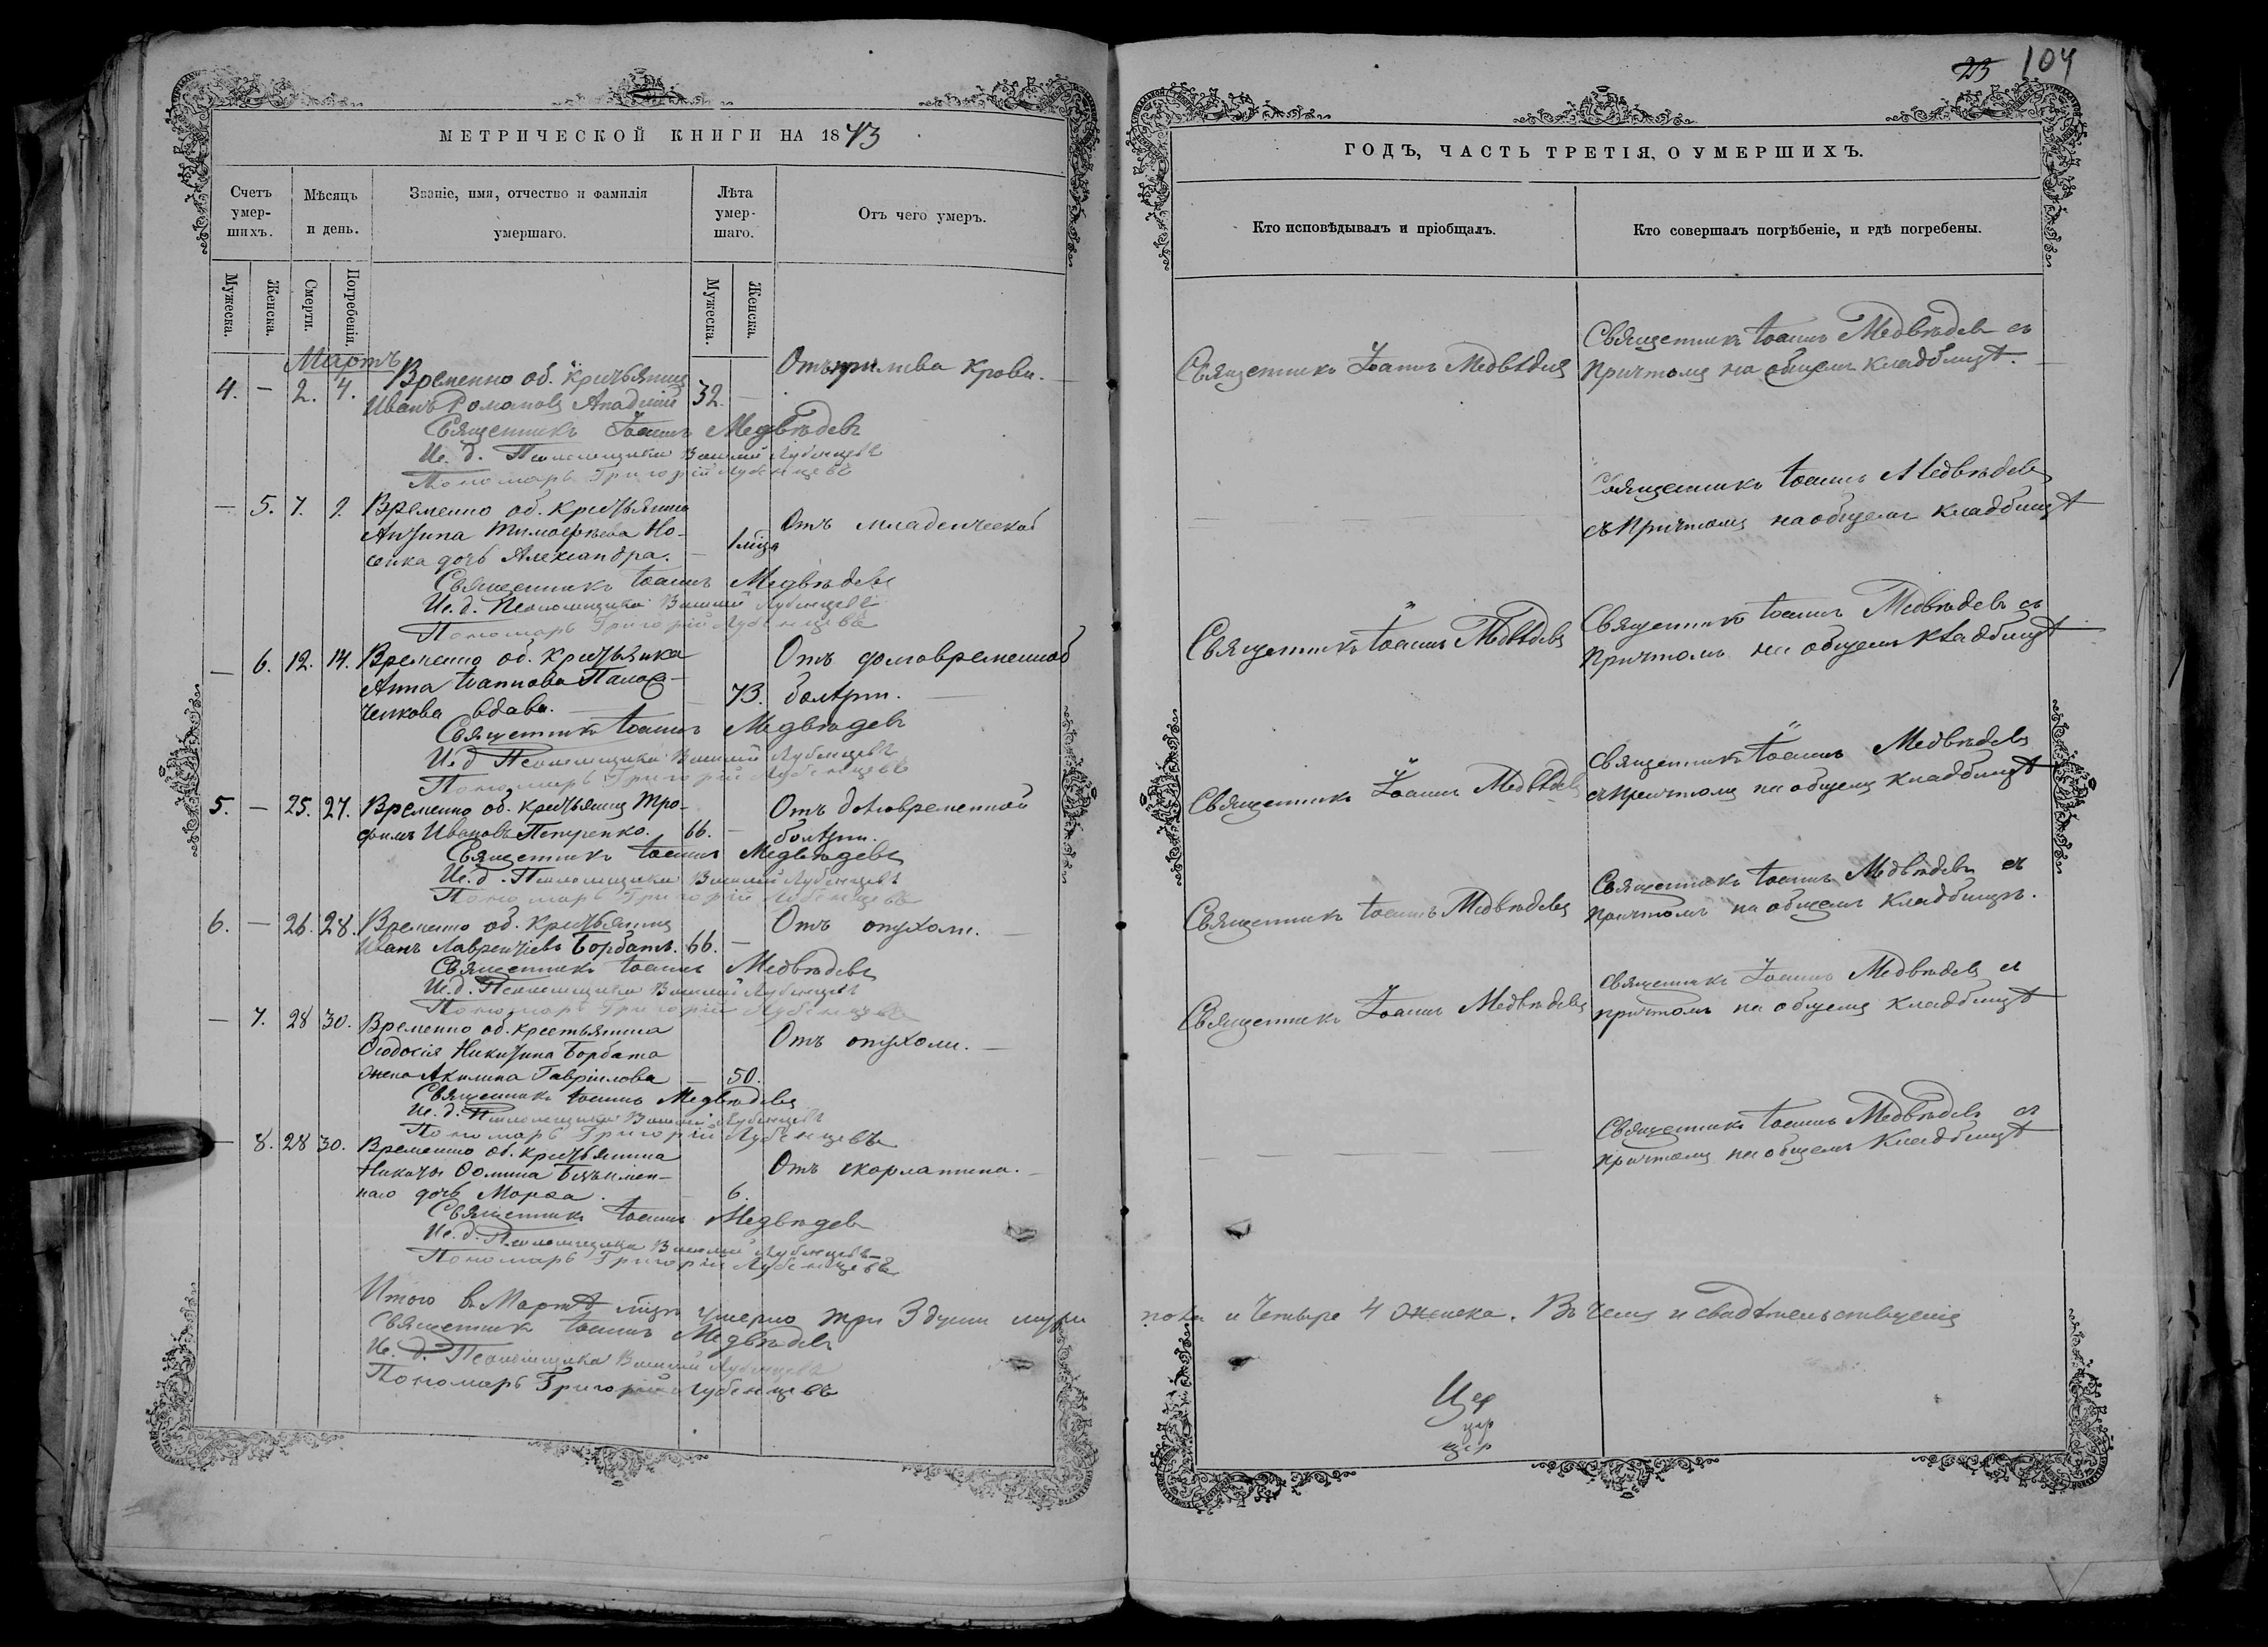 МЕТРИЧЕСКОЙ КНИГИ НА 1873
Счетъ умер-шихъ.
Мѣсяцъ и день.
Званіе, имя, отчество и фамилія умершаго.
Лѣта умер-шаго.
Отъ чего умеръ.
Мужеска.
Женска.
Смерти.
Погребенія.
Мужеска.
Женска.
Мартъ
4. — 2. 4. Временно об. крестьянинъ 32. — Отъ прилива крови. —
Иванъ Романовъ
Священникъ Іоаннъ Медвѣдевъ
Ис. д. Псаломщика Василій Лубенцевъ
Пономарь Григорій Лубенцевъ
— 5. 7. 9. Временно об. крестьянина
Тимофѣева Но- Отъ младенческой
сенка дочь Александра. — 1 мѣся
Священникъ Іоаннъ Медвѣдевъ
Ис. д. Псаломщика Василій Лубенцевъ
Пономарь Григорій Лубенцевъ
— 6. 12. 14. Временно об. крестьянка Отъ долговременной
Анна Іоаннова
ченкова вдова. — 73. болѣзни. —
Священникъ Іоаннъ Медвѣдевъ
Ис. д. Псаломщика Василій Лубенцевъ
Пономарь Григорій Лубенцевъ
5. — 25. 27. Временно об. крестьянинъ Тро- Отъ долговременной
фимъ Ивановъ Петренко. 66. — болѣзни.
Священникъ Іоаннъ Медвѣдевъ
Ис. д. Псаломщика Василій Лубенцевъ
Пономарь Григорій Лубенцевъ
6. — 26. 28. Временно об. крестьянинъ Отъ опухоли. —
Иванъ Лаврентіевъ Горбатъ. 66. —
Священникъ Іоаннъ Медвѣдевъ
Ис. д. Псаломщика Василій Лубенцевъ
Пономарь Григорій Лубенцевъ
— 7. 28 30. Временно об. крестьянина
Ѳеодосія Никитина Горбата Отъ опухоли. —
жена Акилина Гавріилова — 50.
Священникъ Іоаннъ Медвѣдевъ
Ис. д. Псаломщика Василій Лубенцевъ
Пономарь Григорій Лубенцевъ
— 8. 28 30. Временно об. крестьянина
Никиты Ѳомина Безъимен- Отъ скарлатина. —
наго дочь Марѳа. 6.
Священникъ Іоаннъ Медвѣдевъ
Ис. д. Псаломщика Василій Лубенцевъ
Пономарь Григорій Лубенцевъ
Итого въ Мартѣ мѣся умерло три 3 души муже
Священникъ Іоаннъ Медвѣдевъ
Ис. д. Псаломщика Василій Лубенцевъ
Пономарь Григорій Лубенцевъ
23 104
ГОДЪ, ЧАСТЬ ТРЕТІЯ, О УМЕРШИХЪ.
Кто исповѣдывалъ и пріобщалъ.
Кто совершалъ погребеніе, и гдѣ погребены.
Священникъ Іоаннъ Медвѣдевъ
Священникъ Іоаннъ Медвѣдевъ съ
Причтомъ на общемъ кладбищѣ. —
Священникъ Іоаннъ Медвѣдевъ
съ Причтомъ на общемъ кладбищѣ
Священникъ Іоаннъ Медвѣдевъ
Священникъ Іоаннъ Медвѣдевъ съ
Причтомъ на общемъ кладбищѣ
Священникъ Іоаннъ Медвѣдевъ
Священникъ Іоаннъ Медвѣдевъ
съ Причтомъ на общемъ кладбищѣ
Священникъ Іоаннъ Медвѣдевъ
Священникъ Іоаннъ Медвѣдевъ съ
Причтомъ на общемъ кладбищѣ.
Священникъ Іоаннъ Медвѣдевъ
Священникъ Іоаннъ Медвѣдевъ съ
причтомъ на общемъ кладбищѣ
Священникъ Іоаннъ Медвѣдевъ съ
причтомъ на общемъ кладбищѣ
пола и четыре 4 женска. Въ чемъ и свидѣтельствуемъ